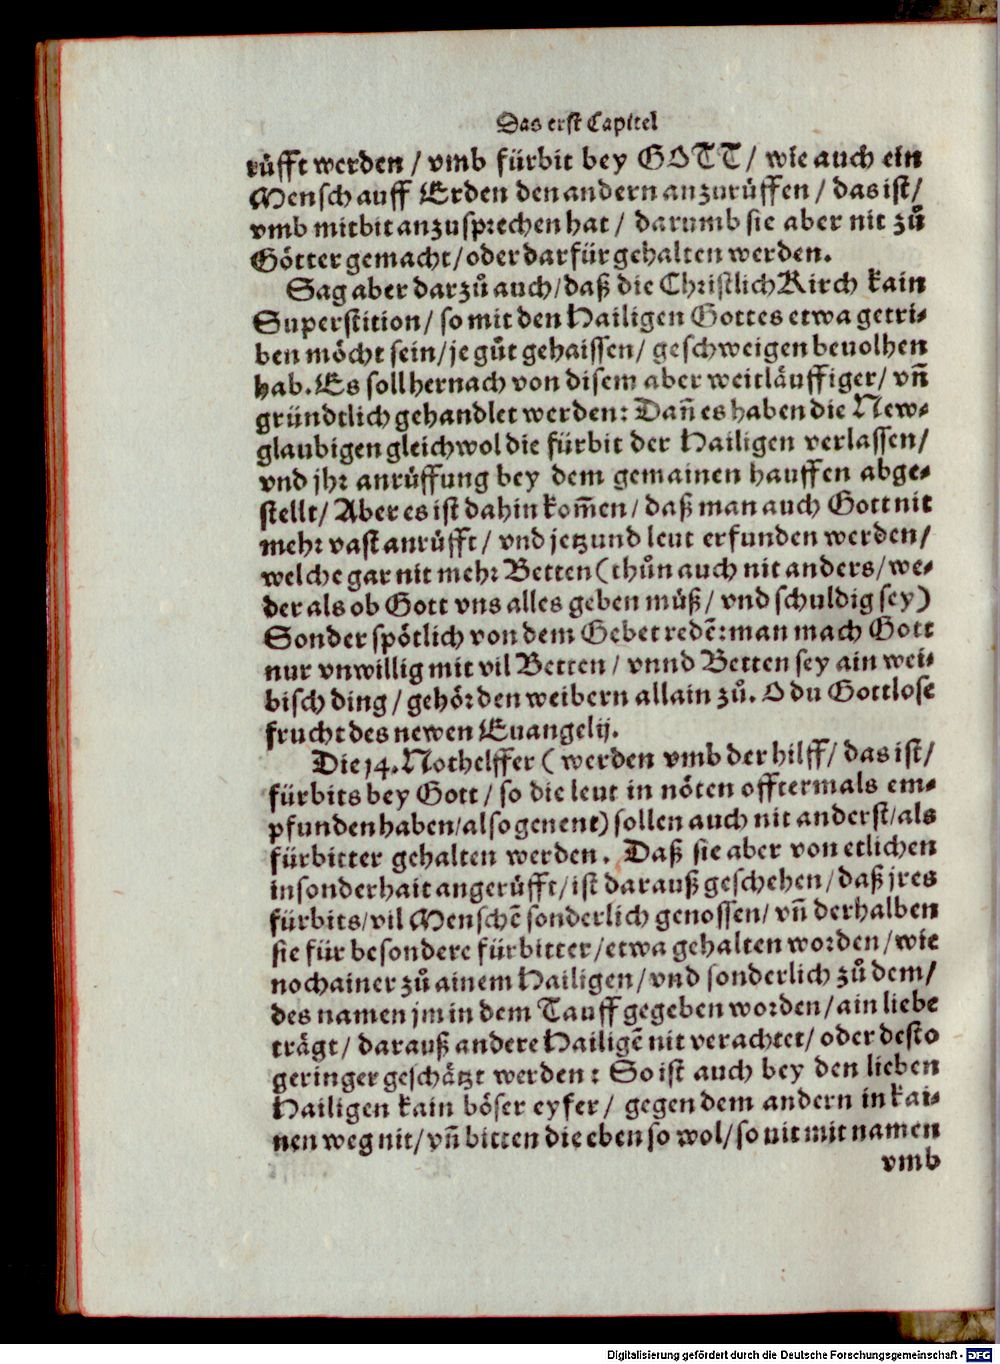 Das erst Capitel
růfft werden / vmb fürbit bey GOTT / wie auch ein
Mensch auff Erden den andern anzurůffen / das ist /
vmb mitbit anzusprechen hat / darumb sie aber nit zů
Götter gemacht / oder darfür gehalten werden.
Sag aber darzů auch / daß die Christlich Kirch kain
Superstition / so mit den Hailigen Gottes etwa getri-
ben möcht sein / je gůt gehaissen / geschweigen beuolhen
hab. Es soll hernach von disem aber weitläuffiger / vñ
gründtlich gehandlet werden: Dañ es haben die New-
glaubigen gleichwol die fürbit der Hailigen verlassen /
vnd jhr anrůffung bey dem gemainen hauffen abge-
stellt / Aber es ist dahin kom̃en / daß man auch Gott nit
mehr vast anrůfft / vnd jetzund leut erfunden werden /
welche gar nit mehr Betten (thůn auch nit anders / we-
der als ob Gott vns alles geben můß / vnd schuldig sey)
Sonder spötlich von dem Gebet redẽ: man mach Gott
nur vnwillig mit vil Betten / vnnd Betten sey ain wei-
bisch ding / gehörden weibern allain zů. O du Gottlose
frucht des newen Euangelij.
Die 14. Nothelffer (werden vmb der hilff / das ist /
fürbits bey Gott / so die leut in nöten offtermals em-
pfunden haben / also genent) sollen auch nit anderst / als
fürbitter gehalten werden. Daß sie aber von etlichen
insonderhait angerůfft / ist darauß geschehen / daß jres
fürbits / vil Menschẽ sonderlich genossen / vñ derhalben
sie für besondere fürbitter / etwa gehalten worden / wie
noch ainer zů ainem Hailigen / vnd sonderlich zů dem /
des namen jm in dem Tauff gegeben worden / ain liebe
trägt / darauß andere Hailigẽ nit verachtet / oder desto
geringer geschätzt werden: So ist auch bey den lieben
Hailigen kain böser eyfer / gegen dem andern in kai-
nen weg nit / vñ bitten die eben so wol / so nit mit namen
vmb
Digitalisierung gefördert durch die Deutsche Forschungsgemeinschaft - DFG